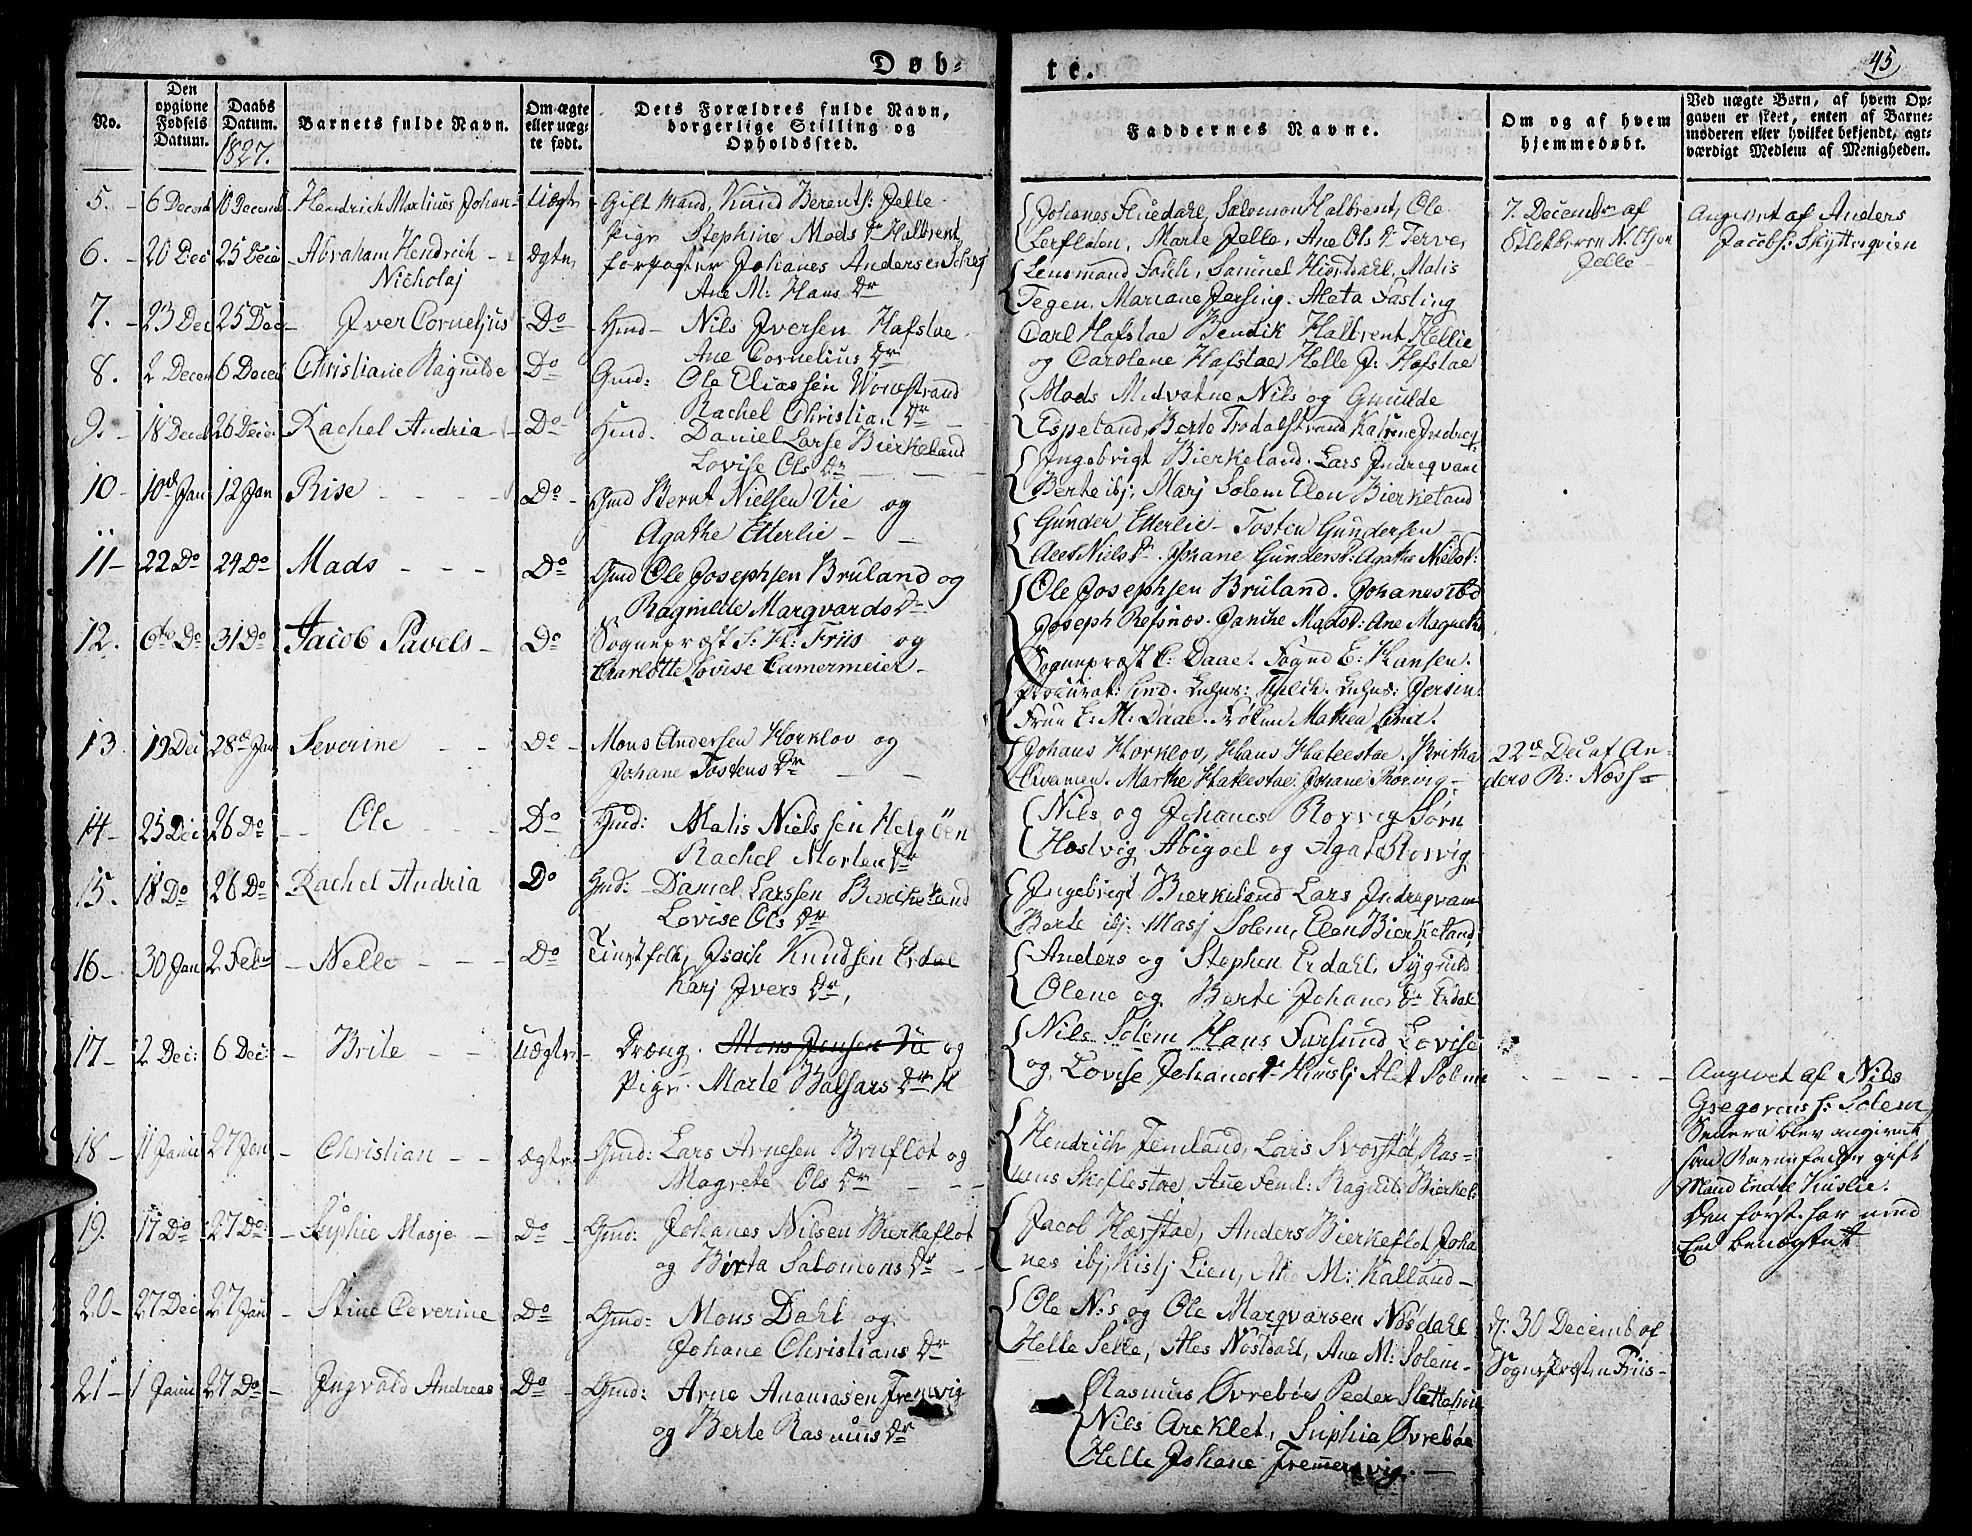 Døb-
te.
45
No.
Den opgivne Fødsels Datum.
Daabs Datum.
1827.
Barnets fulde Navn.
Om ægte eller uægte født.
Dets Forældres fulde Navn, borgerlige Stilling og Opholdssted.
Faddernes Navne.
Om og af hvem hjemmedøbt.
Ved uægte Børn, af hvem Opgaven er skeet, enten af Barnemoderen eller hvilket bekjendt, agtværdigt Medlem af Menigheden.
5. 6 Decemb 10 Decemb Hendrich Martinus Johan Uægte Gift Mand, Knud Berents: Jelle
Pige Stephine Mads Dr Halbrent
Johanes Huedahl, Salomon Halbrent, Ole
Lerfloten, Marte Jelle, Ane Ols Dr Terve,
7. Decembr af
Jelle
Angivet af Anders
Jacobs: Skytteqvien
6. 20 Dec 25 Decem Abraham Hendrich Nicholaj ægte forpagter Johanes Andersen
Ane M: Hans Dr
Lensmand Falch, Samuel Hiortdahl, Matis
Tegen, Mariane Jersing. Aleta Fasling
7. 23 Dec 25 Dec Iver Cornelius Do Gmd Nils Iversen Hafstae
Ane Cornelius Dr
Carl Hafstae Bendik Halbrent Hellie
og Carolene Hafstae Helle J: Hafstae
8. 2 Decem 6 Decem Christiane Ragnilde Do Gmd: Ole Eliassen
Rachel Christian Dr
Mads Midvatne Nils og Gunilde
Espeland, Berte Trodalstrand Katrine Indreq
9. 18 Decem 26 Decem Rachel Andria Do Gmd. Daniel Larse Bierkeland
Lovise Ols Dr
Ingebrigt Bierkeland. Lars Indreqvam
Berte ibj: Marj Solem Elen Bierkeland
10 10d Jan 12 Jan Rise Do Gmd Bernt Nielsen Vie og
Agathe Etterlie
Gunder Etterlie Tosten Gundersen
Niels Dr. Johane Gunders: Agathe Niels:
11 22 Do 24 Do Mads Do Gmd Ole Josephsen Bruland og
Ragnilde Marqvards Dr
Ole Josephsen Bruland. Johanes ibd
Joseph Refsnæs. Janike Madsd: Ane
12. 6te Do 31 Do Jacob Pavels Do Sognepræst S: H: Friis og
Charlotte Lovise Camermeier
Sognepræst C: Daae. Fogd E: Hansen.
Procurat: Lind. Falch. Jersin:
Frue E: M: Daae. Frøken Mathea Lind.
13. 19 Dec 28d Jan Severine Do Mons Andersen Horklov og
Johane Tostens Dr
Johans Horklov, Hans Hatlestae, Britha
Marthe Hatlestae. Johane Rorvig
22d Dec af An-
ders R: Næss
14 25 Dec 26 Do Ole Do Gmd: Matis Nielssen Helgøen
Rachel Morten Dr
Nils og Johanes Rorvig Sørn
Hæstvig, Abigael og Agate Rorvig
15. 18 Do 26 Do Rachel Andria Do Gmd: Daniel Larssen Bierkeland
Lovise Ols Dr
Ingebrigt Bierkeland Lars Indreqvam
Berte ibj: Masj Solem, Elen Bierkeland
16 30 Jan 2 Febr Nelle Do Tinistfolk, Isach Knudsen Erdal
Karj Ivers Dr,
Anders og Stephen Erdahl, Sygnild
Olene og Berte Johanes Dr Erdal
17 2 Dec: 6 Dec: Brite Uægte Dræng. Mons Jensen Vie og
Pige. Marte Balsars Dr
Nils Solem Hans Farsund Lovise
og, Lovise Johanes Dr Huuslj Alet Solem
Angivet af Nils
Gregorius s: Solem
Senere blev angivet
som Barnefader gift
Mand Endre Huslie.
Den først har med
Eed benægtet
18 11 Janu 27 Jan Christian ægte Gmd: Lars Arnesen Bruflot og
Magrete Ols Dr
Hendrich Femland, Lars Svorstøl Ras-
mus Skiflestae, Ane Feml: Ragnil: Bierkel:
19. 17 Do 27 Do: Siphie Masje Do Gmd: Johanes Nilsen Bierkeflot
og Birta Salomons Dr
Jacob Hæstae, Anders Bierkeflot Joha
nes ibj, Kislj Lien, M: Kalland
20 27 Dec 27 Jan Stine Ceverine Do Gmd: Mons Dahl og
Johane Christians Dr
Ole N:s og Ole Marqvarsen Nøsdahl
Helle Selle, Ales Nøstdahl, Ane M: Solem
d: 30 Decemb. af
Sognepræsten Friis
21 1 Janu 27 Do Ingvald Andreas Do Gmd: Arne Anamasen
og Berte Rasmus Dr
Rasmus Øvrebøe Peder
Nils Areklet, Suphia Øvrebøe
Helle Johane